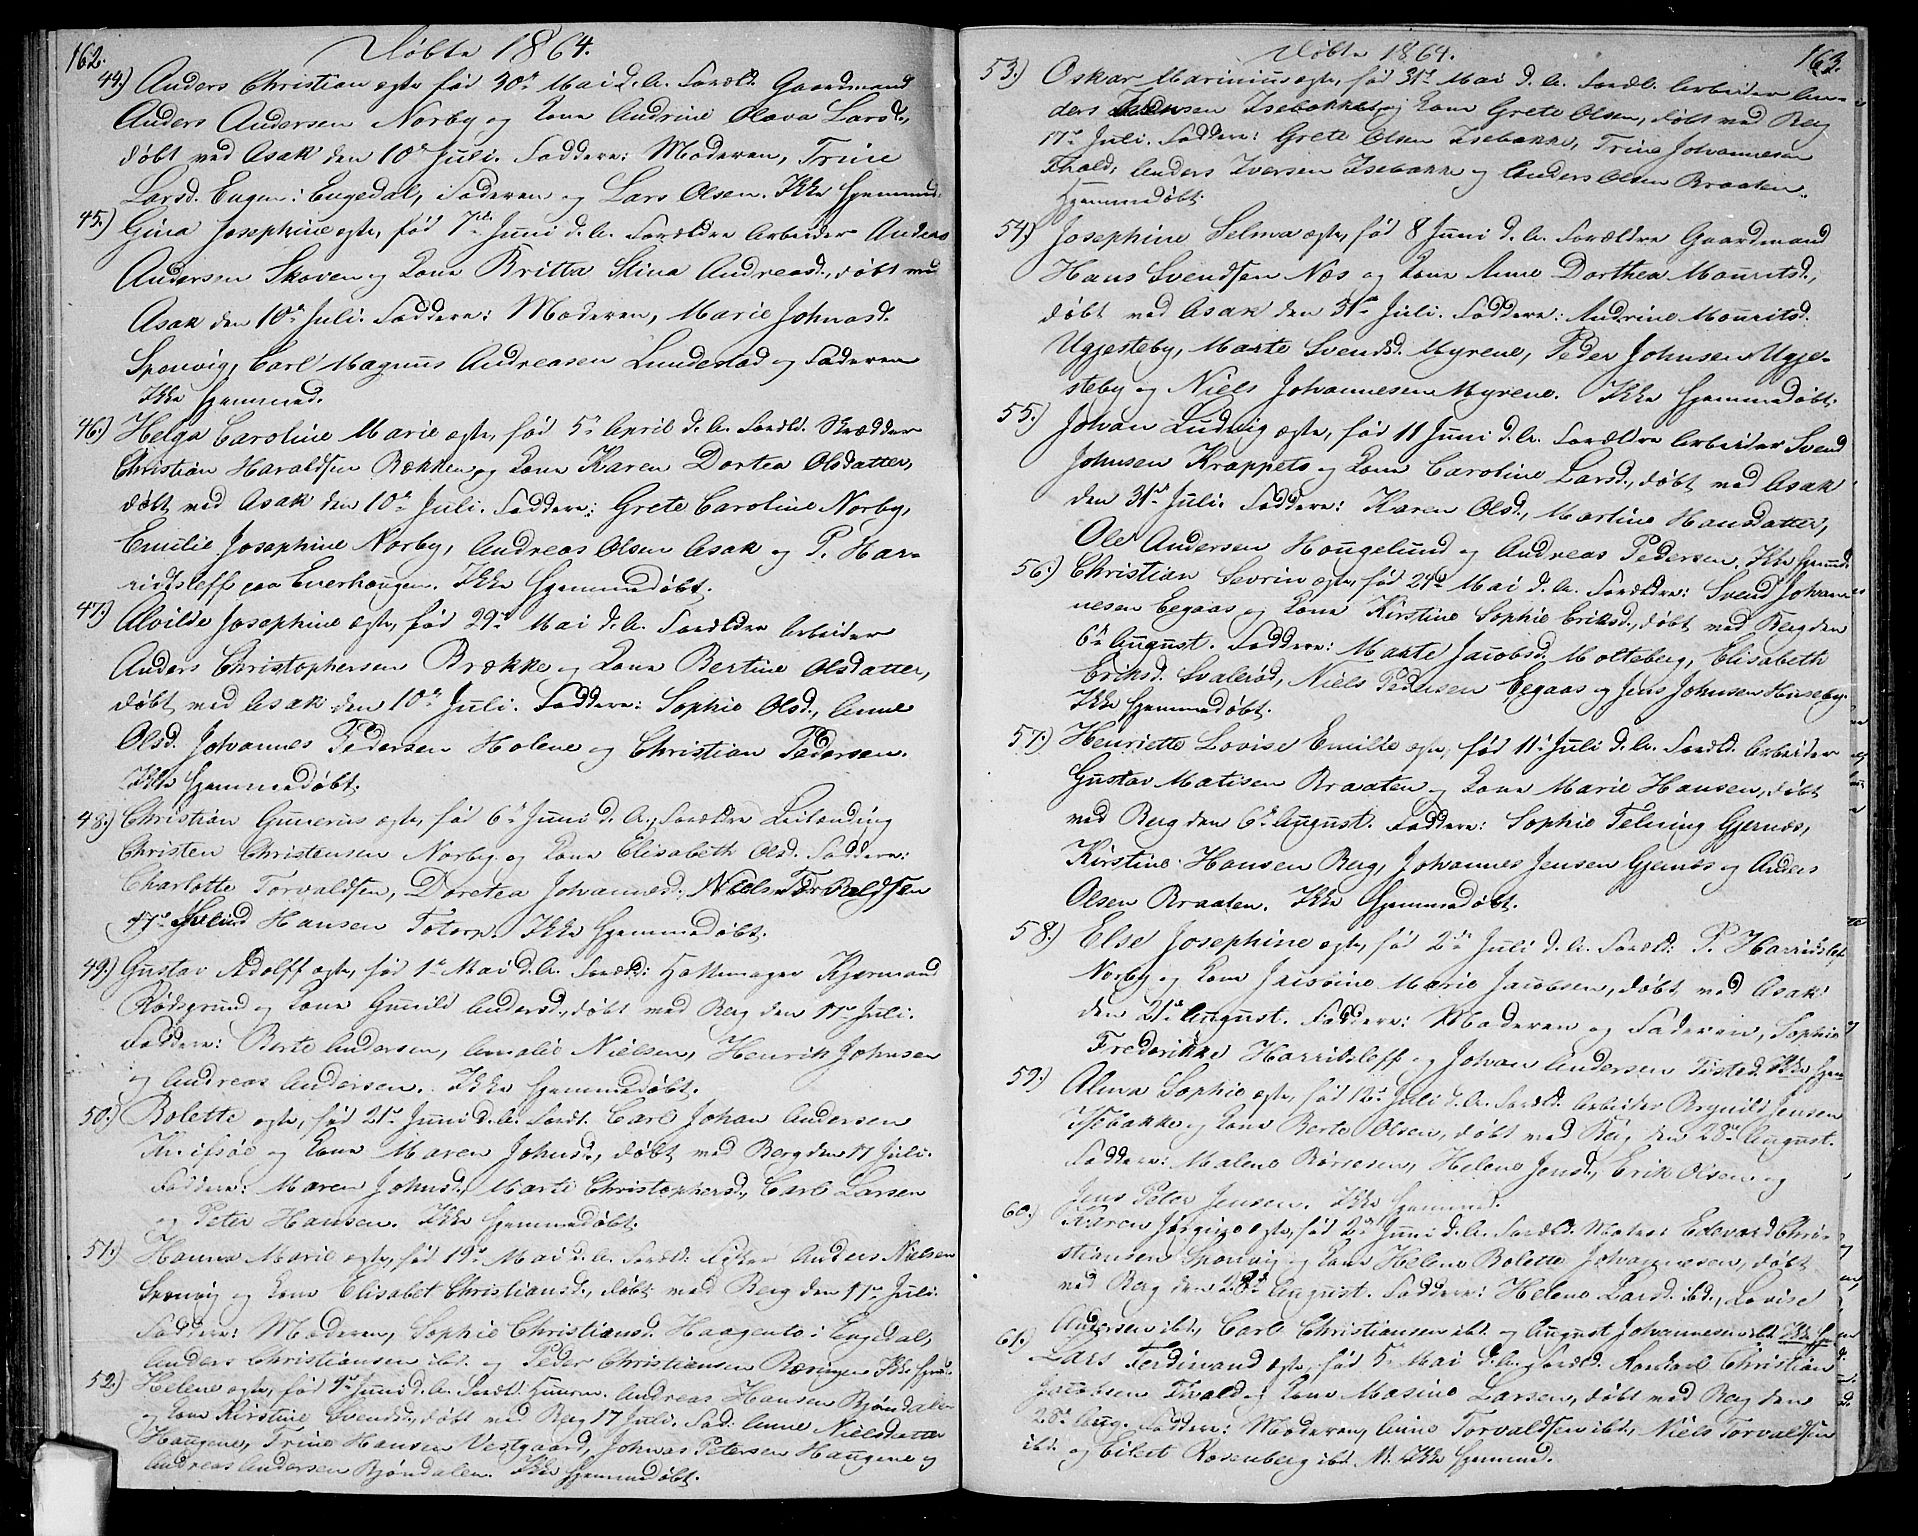 162.
Döbte 1864.
44.) Anders Christian ægte, født 30te Mai d.A. Foræld. Gaardmand
Anders Andersen Norby og Kone Andrine Olava Larsd.,
döbt ved Asak den 10de Juli. Faddere: Moderen, Trine
Larsd. Engen i Engedal, Faderen og Lars Olsen. Ikke hjemmed.
45.) Gina Josephine ægte, född 7de Juni d.A. Forældre Arbeider Anders
Andersen Skoven og Kone Britta Stina Andreasd., döbt ved
Asak den 10de Juli. Faddere: Moderen, Marie Johnasd.
Sponvig, Carl Magnus Andreasen Lundestad og Faderen
Ikke hjemmed.
46.) Helga Caroline Marie ægte, född 5te April d.A. Foræld. Skrædder
Christian Haraldsen Bækken og Kone Karen Dortea Olsdatter,
döbt ved Asak den 10de Juli. Faddere: Grete Caroline Norby,
Emilie Josephine Norby, Andreas Olsen Asak og P. Har-
ridsleff paa Enerhougen. Ikke hjemmedöbt.
47.) Alvilde Josephine ægte, född 29de Mai d.A. Forældre Arbeider
Anders Christophersen Brække og Kone Bertine Olsdatter,
döbt ved Asak den 10de Juli. Faddere: Sophie Olsd., Anne
Olsd. Johannes Pedersen Holene og Christian Pedersen.
Ikke hjemmedöbt.
48.) Christian Gunerus ægte, född 6te Juni d.A., Forældre Leilænding
Christen Christensen Norby og Kone Elisabeth Olsd. Faddere:
Charlotte Torvaldsen, Dorotea Johannesd. Niels Torvaldsen
Svend Hansen Totorp. Ikke hjemmedöbt.
49.) Gustav Adolff ægte, född 1te Mai d.A. Foræld: Hattemager
Rödsgrund og Kone Gunild Andersd., döbt ved Berg den 17de Juli.
Faddere: Berte Andersen, Amalie Nielsen, Henrik Johnsen
og Andreas Andersen. Ikke hjemmedöbt.
50.) Bolette ægte, född 21de Juni d.A. Foræld. Carl Johan Andersen
Knifsöe og Kone Maren Johnsd., döbt ved Berg den 17 Juli.
Faddere: Maren Johnsd., Marte Christophersd., Carl Larsen
og Peter Hansen. Ikke hjemmedöbt.
51.) Hanna Marie ægte, född 19de Mai d.A. Foræld: Fisker Anders Nielsen
Sponvig og Kone Elisabet Christiansd., döbt ved Berg den 17de Juli.
Faddere: Moderen, Sophie Christiansd. Haagento i Engedal,
Anders Christiansen ibd. og Peder Christiansen Ikke hjem.
52.) Helene ægte, född 9de Juni d.A. Foræld: Huusm. Andreas Hansen Bjöndalen
og Kone Kirstine Svendsd., döbt ved Berg 17 Juli. Fad: Anne Nielsdatter
Haugene, Trine Hansen Vestgaard, Johnas Petersen Haugene og
Andreas Andersen Bjöndalen. Ikke hjemmedöbt.
163.
Döbte 1864.
53.) Oskar Marinius ægte, född 31te Mai d.A. Foræld. Arbeider An-
ders Iversen Isebakke og Kone Grete Olsen, döbt ved Berg
17de Juli. Faddere: Grete Olsen Isebakke, Trine Johannesen
Thvald, Anders Iversen Isebakke og Anders Olsen Braaten.
Hjemmedöbt.
54.) Josephine Selma ægte, född 8 Juni d.A. Forældre Gaardmand
Hans Svendsen Næs og Kone Anne Dorthea Mouritsd.,
döbt ved Asak den 31te Juli. Faddere: Andrine Mouritsd.
Ugjesteby, Marte Svendsd. Myrene, Peder Johnsen Ugje-
steby og Niels Johannesen Myrene. Ikke hjemmedöbt.
55.) Johan Ludvig ægte, född 11 Juni d.A. Forældre Arbeider Svend
Johnsen Krappets og Kone Caroline Larsd., döbt ved Asak
den 31te Juli. Faddere: Karen Olsd., Martine Hansdatter,
Ole Andersen Hougelund og Andreas Pedersen. Ikke hjemmed.
56.) Christian Sevrin ægte, född 24de Mai d.A. Forældre: Svend Johan-
nesen Eegaas og Kone Kirstine Sophie Eriksd., döbt ved Berg den
6te August. Faddere: Marte Jacobsd. Molteberg, Elisabeth
Eriksd. Svaleröd, Niels Pedersen Eegaas og Jens Johnsen Huseby.
Ikke hjemmedöbt.
57.) Henriette Lovise Emilie ægte, född 11te Juli d.A. Foræld. Arbeider
Gustav Matisen Braaten og Kone Marie Hansen, döbt
ved Berg den 6te August. Faddere: Sophie Gjernæs,
Kirstine Hansen Berg, Johannes Jensen Gjernæs og Anders
Olsen Braaten. Ikke hjemmedöbt.
58.) Else Josephine ægte, född 2den Juli d.A. Foræld: P. Harridslef
Norby og Kone Marie Jacobsen, döbt ved Asak
den 21de August. Faddere: Moderen og Faderen, Sophie
Frederikke Harridsleff og Johan Andersen Tisted. Ikke hjem.
59.) Alma Sophie ægte, född 12te Juli d.A. Foræld. Arbeider Brynild Jensen
Isebakke og Kone Berte Olsen, döbt ved Berg den 28de August.
Faddere: Malene Börresen, Helene Jensd., Erik Olsen og
Jens Peter Jensen. Ikke hjemmed.
60.) Karen Jörgine ægte, född 2den Juni d.A. Foræld. Matros Edevard Chri-
stiansen Sponvig og Kone Helene Bolette Johannesen, döbt
ved Berg den 28de August. Faddere: Helene Larsd. ibd., Lovise
Andersen ibd., Carl Christiansen ibd. og August Johannesen ibd. Ikke hjem
61.) Lars Ferdinand ægte, född 5te Mai d.A. Foræld. Christian
Jacobsen Thvald og Kone Masine Larsen, döbt ved Berg den
28de Aug. Faddere: Moderen, Anne Torvaldsen ibd., Niels Torvaldsen
ibd. og Eilert Rosenberg ibd. Ikke hjemmed.